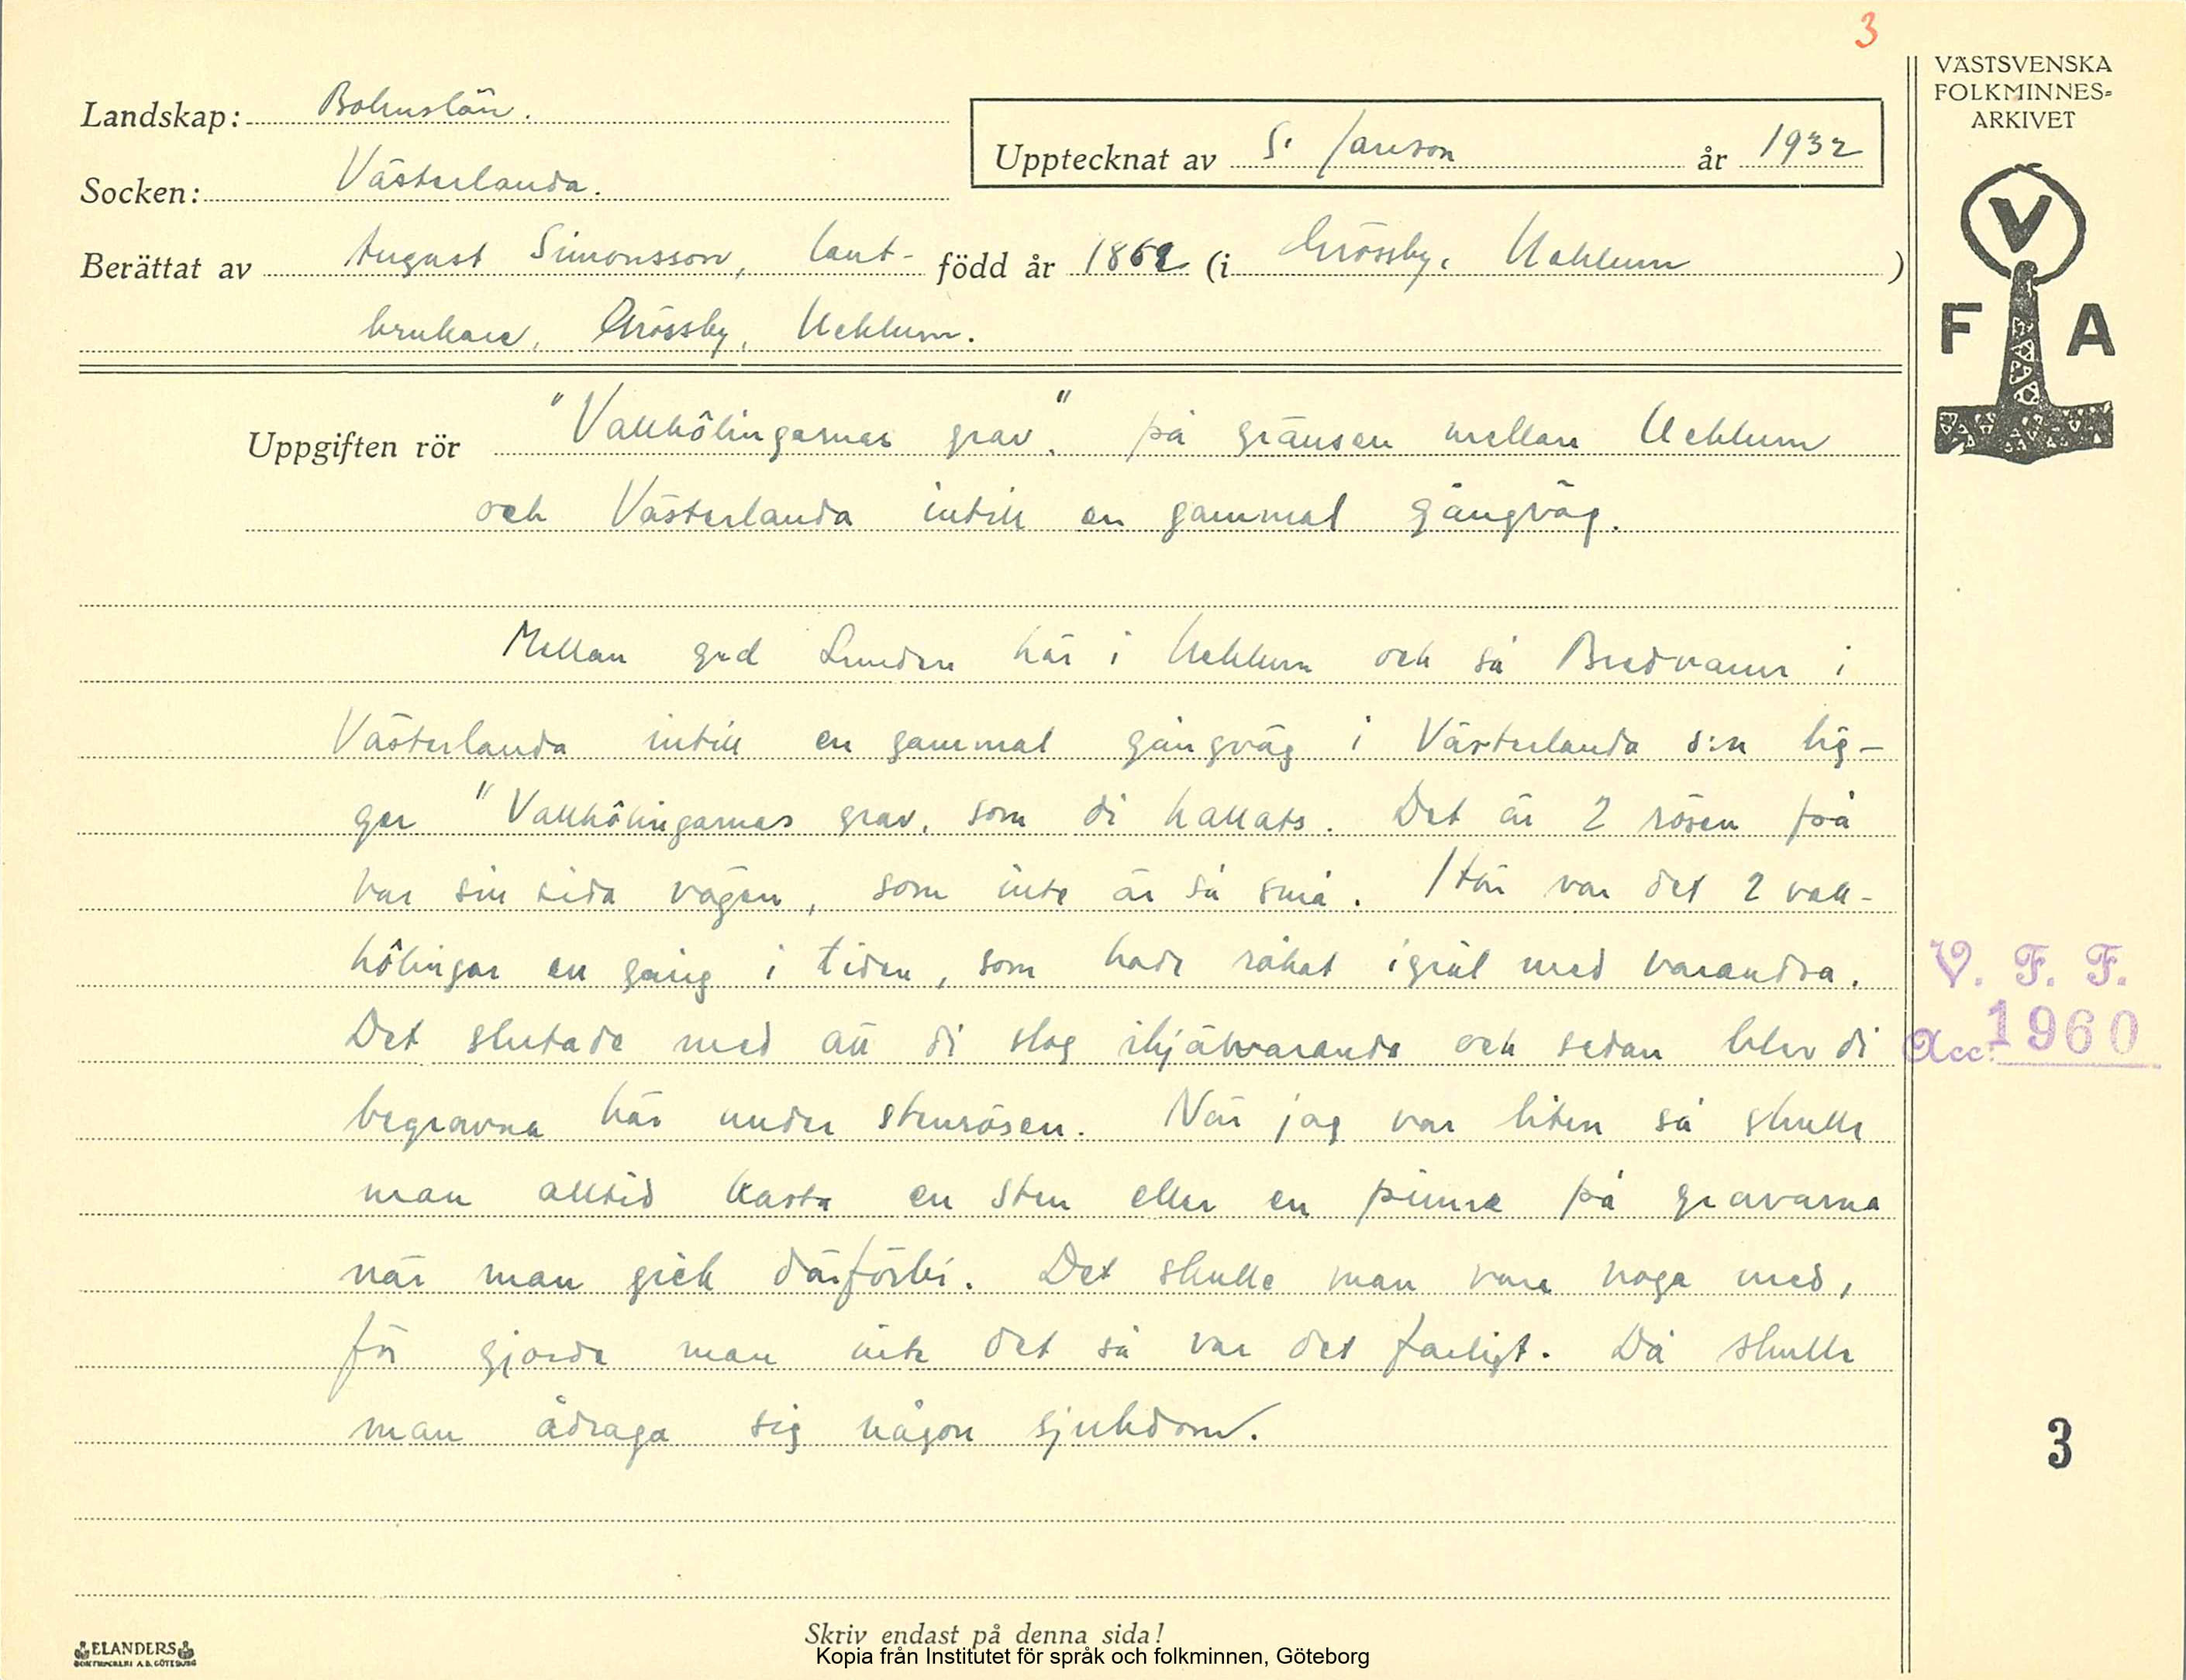 3
VÄSTSVENSKA
FOLKMINNES=
ARKIVET
Landskap: Bohuslän.
Upptecknat av S. Janson år 1932
Socken: Västerlanda.
Berättat av August Simonsson, lant- född år 1862 (i Grössby, Ucklum)
brukare, Grössby, Ucklum.
V
F A
Uppgiften rör "Vallhôlingarnas grav." på gränsen mellan Ucklum
och Västerlanda intill en gammal gångväg.
Mellan grd Lunden här i Ucklum och så Bredvann i
Västerlanda intill en gammal gångväg i Västerlanda s:n lig-
ger "Vallhôlingarnas grav, som di kallats. Det är 2 rösen på
var sin sida vägen, som inte är så små. Här var det 2 vall-
hôlingar en gång i tiden, som hade råkat i gräl med varandra.
Det slutade med att di slog ihjälvaranda och sedan blev di
begravna här under stenrösen. När jag var liten så skulle
man alltid kasta en sten eller en pinne på gravarna
när man gick därförbi. Det skulle man vara noga med,
för gjorde man inte det så var det farligt. Då skulle
man ådraga sig någon sjukdom.
V. F. F.
Acc. 1960
3
Skriv endast på denna sida!
ELANDERS
BOKTRYCKERI A.B. GÖTEBORG
Kopia från Institutet för språk och folkminnen, Göteborg